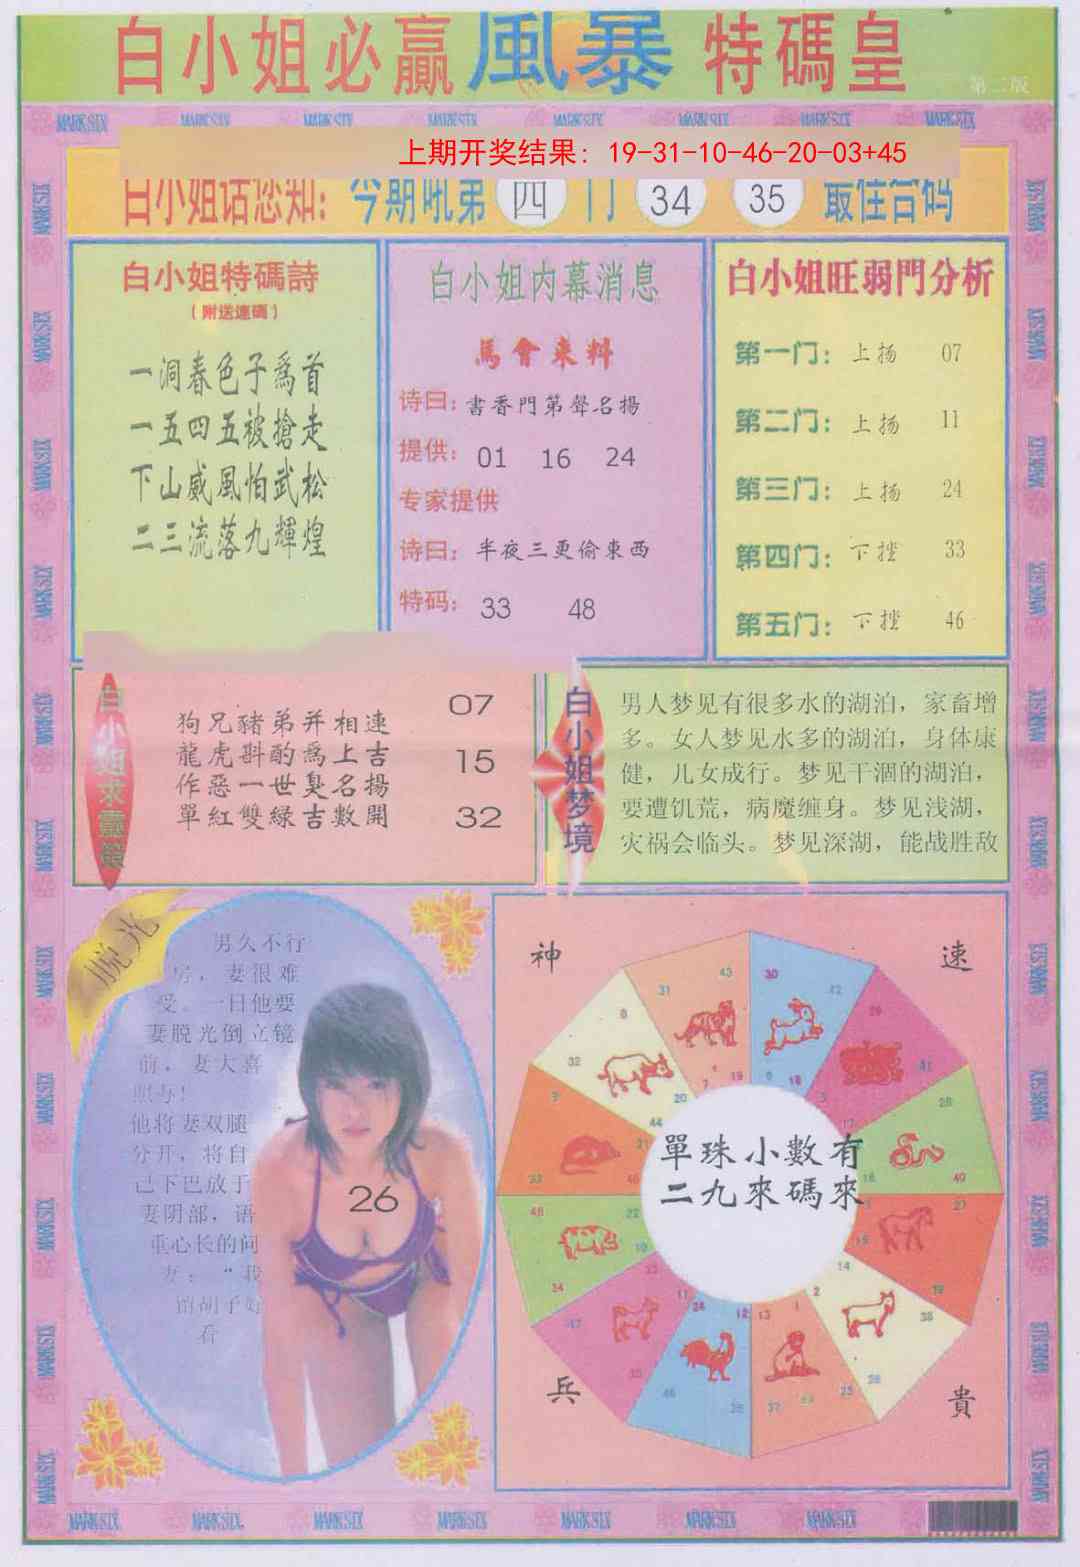 白小姐必贏風暴特碼皇
第二版
MARK SIX MARK SIX MARK SIX MARK SIX MARK SIX MARK SIX MARK SIX MARK SIX
上期开奖结果：19-31-10-46-20-03+45
白小姐话您知：今期吼第 四 门 34 35 最佳合码
白小姐特碼詩
（附送連碼）
一洞春色子爲首
一五四五被搶走
下山威風怕武松
二三流落九輝煌
白小姐内幕消息
馬會来料
诗曰：書香門第聲名揚
提供：01 16 24
专家提供
诗曰：半夜三更偷東西
特码：33 48
白小姐旺弱門分析
第一门：上扬 07
第二门：上扬 11
第三门：上扬 24
第四门：下挫 33
第五门：下挫 46
白小姐求靈簽
狗兄豬弟并相連
龍虎斟酌爲上吉
作惡一世臭名揚
單紅雙緑吉數開
07
15
32
白小姐梦境
男人梦见有很多水的湖泊，家畜增
多。女人梦见水多的湖泊，身体康
健，儿女成行。梦见干涸的湖泊，
要遭饥荒，病魔缠身。梦见浅湖，
灾祸会临头。梦见深湖，能战胜敌
脱光
男久不行
房，妻很难
受。一日他要
妻脱光倒立镜
前，妻大喜
照与！
他将妻双腿
分开，将自
己下巴放于
妻阴部，语
重心长的问
妻：“我
的胡子好
看
26
神
速
兵
貴
單珠小數有
二九來碼來
43 31 7 19
30 42 6 18
29 41 5
28 40 16
27 39 15
14 38 26 2
1 13 25 37
12 24 36 48
11 23 35 47
46 34 22 10
9 33 45
8 32 20 44
MARK SIX MARK SIX MARK SIX MARK SIX MARK SIX MARK SIX MARK SIX